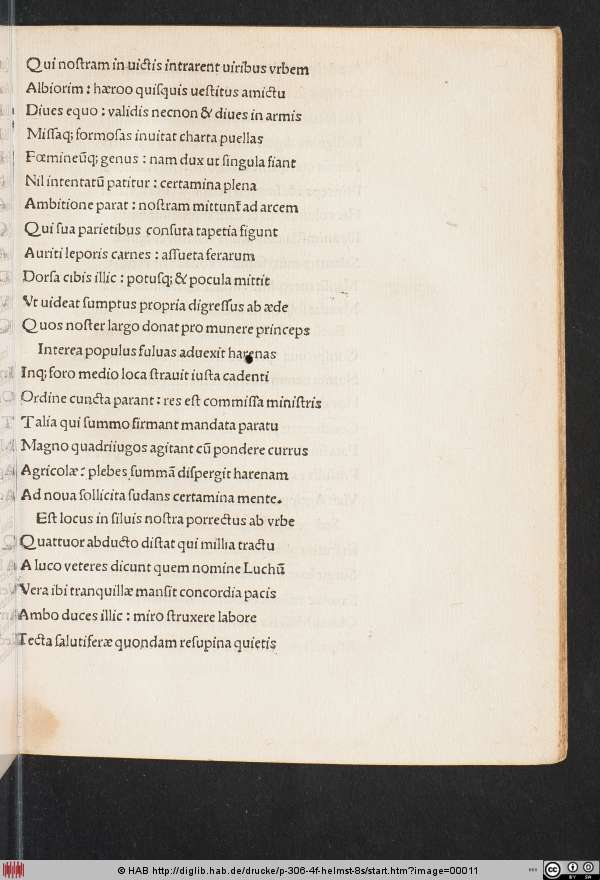 Qui noſtram in uictis intrarent uiribus vrbem
Albiorim : hæroo quiſquis ueſtitus amictu
Diues equo : validis necnon & diues in armis
Miſſaq; formoſas inuitat charta puellas
Fœmineũq; genus : nam dux ut ſingula fiant
Nil intentatũ patitur : certamina plena
Ambitione parat : noſtram mittunt̃ ad arcem
Qui ſua parietibus conſuta tapetia figunt
Auriti leporis carnes : aſſueta ferarum
Dorſa cibis illic : potuſq; & pocula mittit
Vt uideat ſumptus propria digreſſus ab æde
Quos noſter largo donat pro munere princeps
Interea populus fuluas aduexit harenas
Inq; foro medio loca ſtrauit iuſta cadenti
Ordine cuncta parant : res eſt commiſſa miniſtris
Talia qui ſummo firmant mandata paratu
Magno quadriiugos agitant cũ pondere currus
Agricolæ : plebes ſummã diſpergit harenam
Ad noua ſollicita ſudans certamina mente.
Eſt locus in ſiluis noſtra porrectus ab vrbe
Quattuor abducto diſtat qui millia tractu
A luco veteres dicunt quem nomine Luchũ
Vera ibi tranquillæ manſit concordia pacis
Ambo duces illic : miro ſtruxere labore
Tecta ſalutiferæ quondam reſupina quietis
© HAB http://diglib.hab.de/drucke/p-306-4f-helmst-8s/start.htm?image=00011